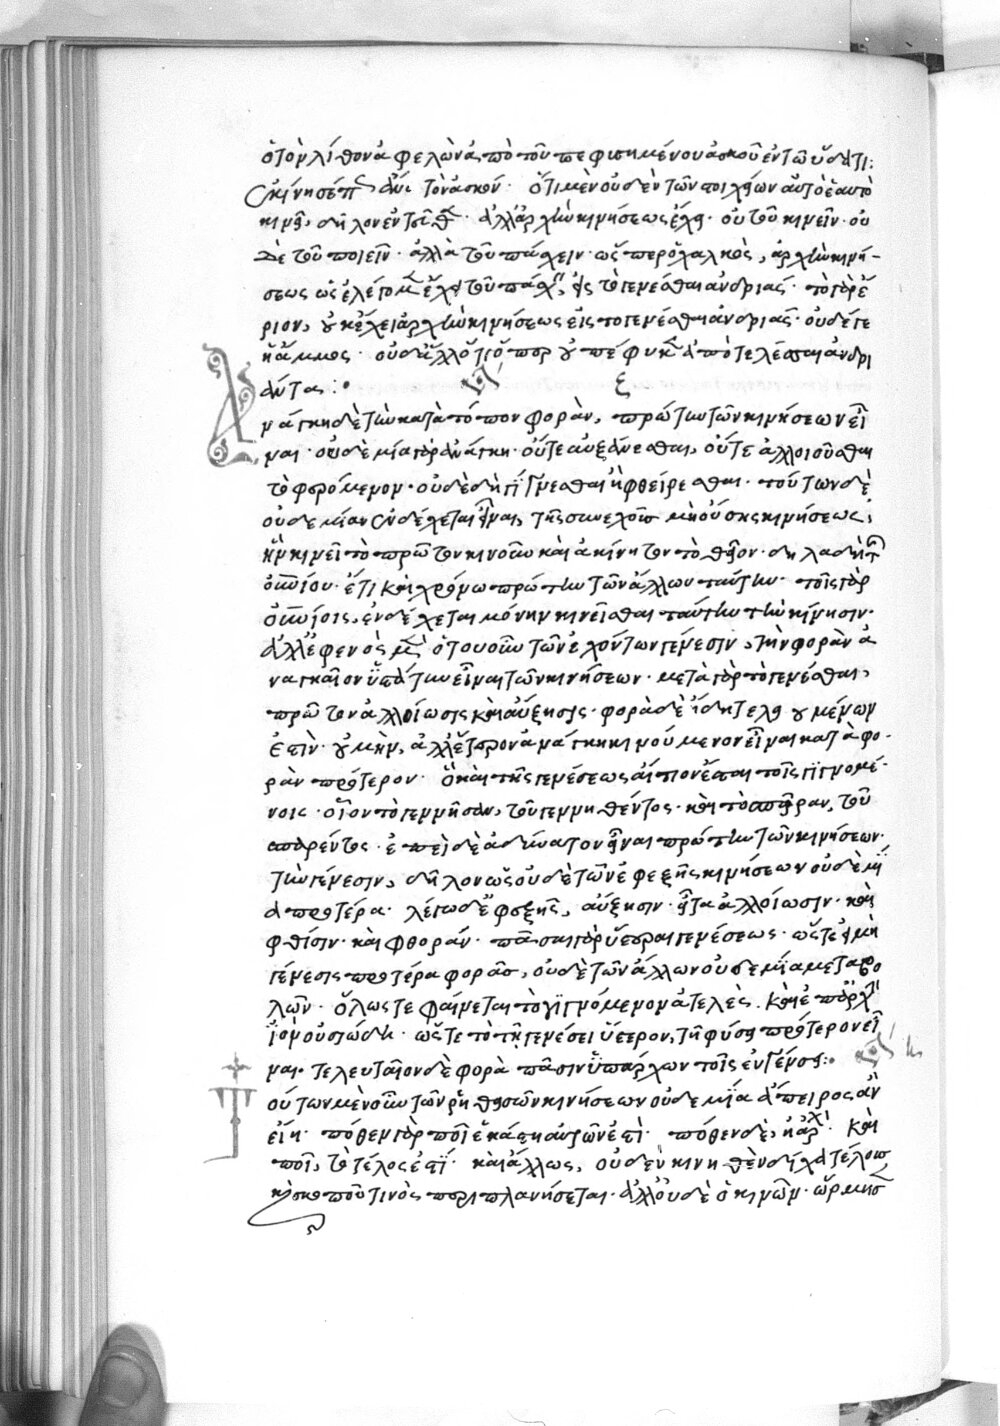 ὁ τὸν λίθον ἀφελὼν ἀπὸ τοῦ πεφυσημένου ἀσκοῦ ἐν τῶ ὕδατι:
κίνησέ τὸν ἀσκόν· ὅτι μὲν οὐδὲν τῶν στοιχείων αὐτὸ ἑαυτὸ
κινεῖ, δῆλον ἐντεῦθεν· ἀλλ' ἀρχὴν κινήσεως ἔχει· οὐ τοῦ κινεῖν· οὐ
δὲ τοῦ ποιεῖν· ἀλλὰ τοῦ πάσχειν· ὥσπερ ὁ χαλκὸς, ἀρχὴν κινή-
σεως ὡς ἐλέγομεν ἔχει τοῦ παθεῖν, εἰς τὸ γενέσθαι ἀνδριάς· τὸ γὰρ ἔ
ριον, οὐκ ἔχει ἀρχὴν κινήσεως εἰς τὸ γενέσθαι ἀνδριάς· οὐδέ γε
ἡ ἄμμος· οὐδ' ἄλλό τι ὅπερ οὐ πέφυκεν ἀποτελέσαι ἀνδρι
άντα:·
ξ
Ἀνάγκη δὲ τὴν κατὰ τόπον φορὰν, πρώτην τῶν κινήσεων εἶ
ναι· οὐδεμία γὰρ ἀνάγκη· οὔτε αὐξάνεσθαι, οὔτε ἀλλοιοῦσθαι
τὸ φερόμενον· οὐδὲ δὴ γίνεσθαι ἢ φθείρεσθαι· τούτων δὲ
οὐδεμίαν ἐνδέχεται εἶναι, τῆς συνεχοῦς μὴ οὔσης κινήσεως,
ἣν κινεῖ τὸ πρῶτον κινοῦν καὶ ἀκίνητον τὸ θεῖον· δηλαδὴ τὴν
οὐρανίου· ἔτι καὶ χρόνω πρώτην τῶν ἄλλων ταύτην· τοῖς γὰρ
οὐρανίοις, ἐνδέχεται μόνην κινεῖσθαι ταύτην τὴν κίνησιν·
ἀλλ' ἐφ' ἑνὸς μὲν ὁτουοῦν τῶν ἐχόντων γένεσιν, τὴν φορὰν ἀ
ναγκαῖον ὑστάτην εἶναι τῶν κινήσεων· μετὰ γὰρ τὸ γενέσθαι,
πρῶτον ἀλλοίωσις καὶ αὔξησις· φορὰ δὲ ἤδη τελειουμένων
ἐστὶν· οὐ μὴν, ἀλλ' ἕτερον ἀνάγκη κινούμενον εἶναι κατὰ φο-
ρὰν πρότερον· ὃ καὶ τῆς γενέσεως αἴτιον ἔσται τοῖς γιγνομέ-
νοις· οἷον τὸ γεννῆσαν, τοῦ γεννηθέντος· καὶ τὸ σπεῖραν, τοῦ
σπαρέντος· ἐπεὶ δὲ ἀδύνατον εἶναι πρώτην τῶν κινήσεων
τὴν γένεσιν, δῆλον ὡς οὐδὲ τῶν ἐφεξῆς κινήσεων οὐδεμί
α προτέρα· λέγω δὲ ἐφεξῆς, αὔξησιν· εἶτα ἀλλοίωσιν· καὶ
φθίσιν· καὶ φθοράν· πᾶσαι γὰρ ὕστεραι γενέσεως· ὥστε εἰ μὴ
γένεσις προτέρα φορᾶς, οὐδὲ τῶν ἄλλων οὐδεμία μεταβο
λῶν· ὅλως τε φαίνεται τὸ γιγνόμενον ἀτελὲς· καὶ ἐπ' ἀρχὴν
ἰὸν οὐσιώδη· ὥστε τὸ τῆ γενέσει ὕστερον, τῆ φύσει πρότερον εἶ
ναι· τελευταῖον δὲ φορὰ πᾶσιν ὑπάρχων τοῖς ἐν γενέσει:·
Τούτων μὲν οὖν τῶν ῥηθεισῶν κινήσεων οὐδεμία ἄπειρος ἂν
εἴη· πόθεν γὰρ ποῖ ἑκάστη αὐτῶν ἐστὶ· πόθεν δὲ, ἡ ἀρχὴ· καὶ
ποῖ, τὸ τέλος ἐστί· καὶ ἄλλως, οὐδὲν κινηθὲν δίχα τέλους
καὶ σκοποῦ τινὸς περιπλανήσεται· ἀλλ' οὐδὲ ὁ κινῶν· ὥρμησε